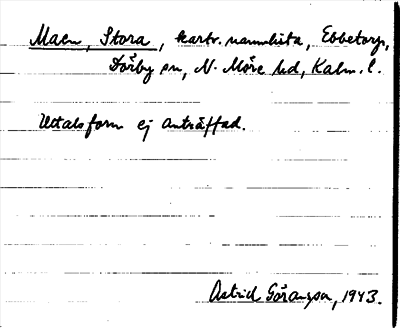 Maen, Stora, kartv. namnlista, Ebbetorp,
Dörby sn, N. Möre hd, Kalm. l.
Uttalsform ej anträffad.
Astrid Göransson, 1943.